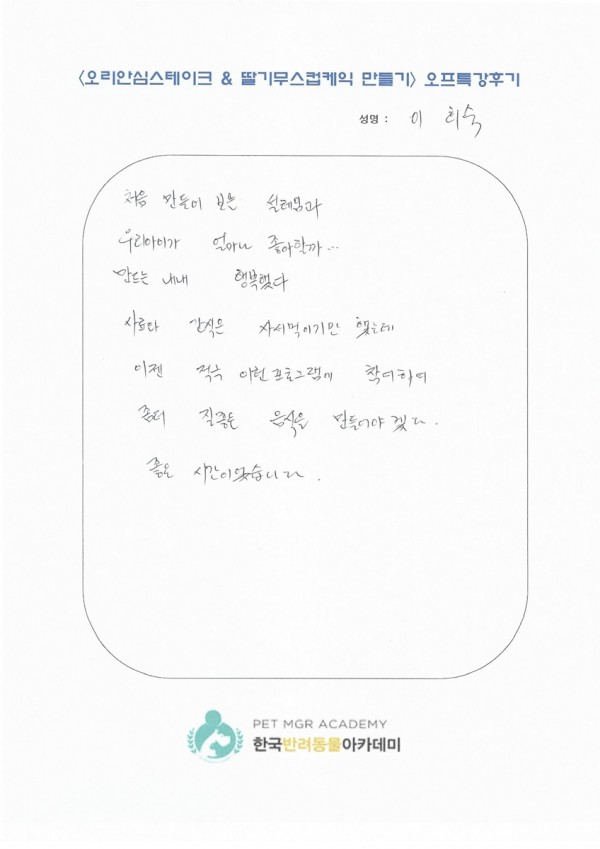 <오리안심스테이크 & 딸기무스컵케익 만들기> 오프특강후기
성명 : 이 희숙
처음 만들어 보는 설레임과
우리아이가 얼마나 좋아할까...
만드는 내내 행복했다
사료와 간식은 사서먹이기만 했는데
이젠 적극 이런프로그램에 참여하여
좀더 질좋은 음식을 만들어야 겠다.
좋은 시간이었습니다.
PET MGR ACADEMY
한국반려동물아카데미